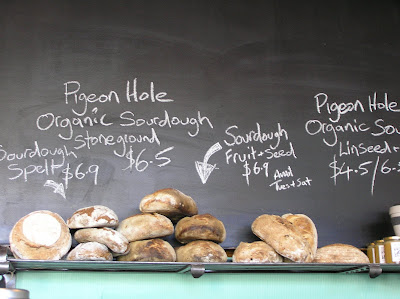 Pigeon Hole
Organic Sourdough
Stoneground
$6.5
Sourdough
Spelt $6.9
Sourdough
Fruit + Seed
$6.9 Avail
Tues + Sat
Pigeon Hole
Organic Sou
Linseed +
$4.5/6.5